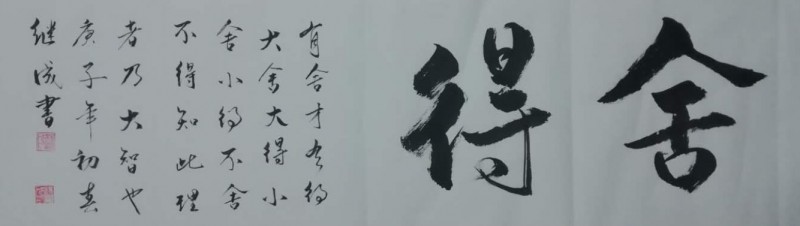 舍得
有舍才有得
大舍大得小
舍小得不舍
不得知此理
者乃大智也
庚子年初春
继成书